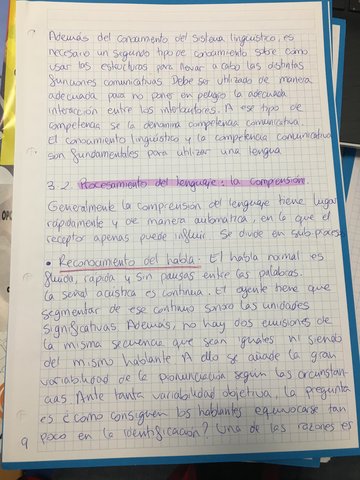 Además del conocimiento del sistema lingüístico, es
necesario un segundo tipo de conocimiento sobre cómo
usar las estructuras para llevar a cabo las distintas
funciones comunicativas. Debe ser utilizado de manera
adecuada para no poner en peligro la adecuada
interacción entre los interlocutores. A ese tipo de
competencia se la denomina competencia comunicativa.
El conocimiento lingüístico y la competencia comunicativa
son fundamentales para utilizar una lengua
3.2. Procesamiento del lenguaje: la comprensión.
Generalmente la comprensión del lenguaje tiene lugar
rápidamente y de manera automática, en la que el
receptor apenas puede influir. Se divide en sub-procesos
• Reconocimiento del habla. El habla normal es
fluida, rápida y sin pausas entre las palabras.
La señal acústica es continua. El oyente tiene que
segmentar de ese continuo sonoro las unidades
significativas. Además, no hay dos emisiones de
la misma secuencia que sean iguales ni siendo
del mismo hablante. A ello se añade la gran
variabilidad de la pronunciación según las circunstan-
cias. Ante tanta variabilidad objetiva, la pregunta
es ¿cómo consiguen los hablantes equivocarse tan
poco en la identificación? Una de las razones es
9